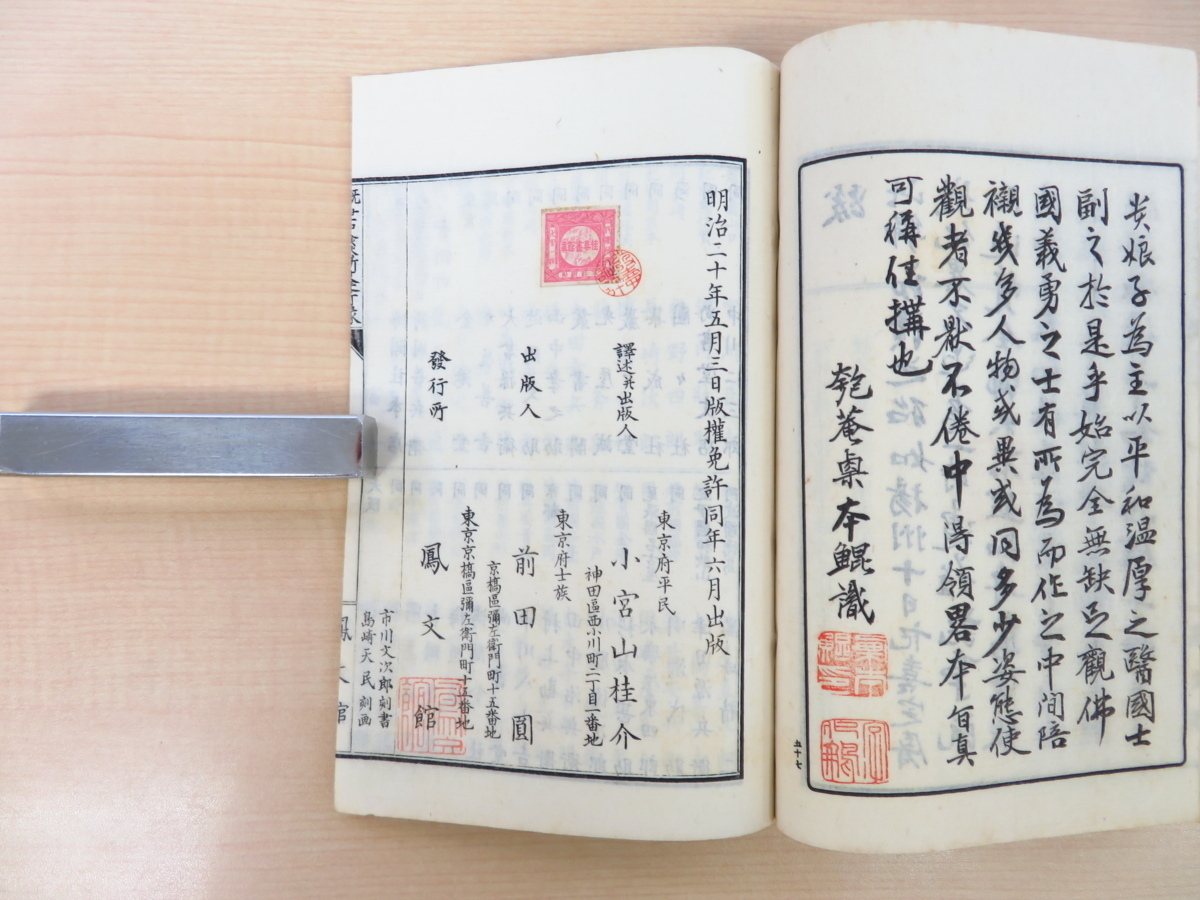 炎娘子為主以平和温厚之醫國士
副之於是乎始完全無缺乏觀佛
國義勇之士有所為而作之中间陪
襯幾多人物或異或同多少姿態使
觀者不厭不倦中得領畧本旨真
可稱佳搆也
匏菴 本鯤識
五十七
明治二十年五月三日版權免許同年六月出版
譯述并出版人
東京府平民
小宮山桂介
神田區西小川町二丁目一番地
出版人
東京府士族
前田圓
京橋區彌左衛門町十五番地
發行所
東京京橋區彌左衛門町十五番地
鳳文館
市川文次郎刻書
島崎天民刻画